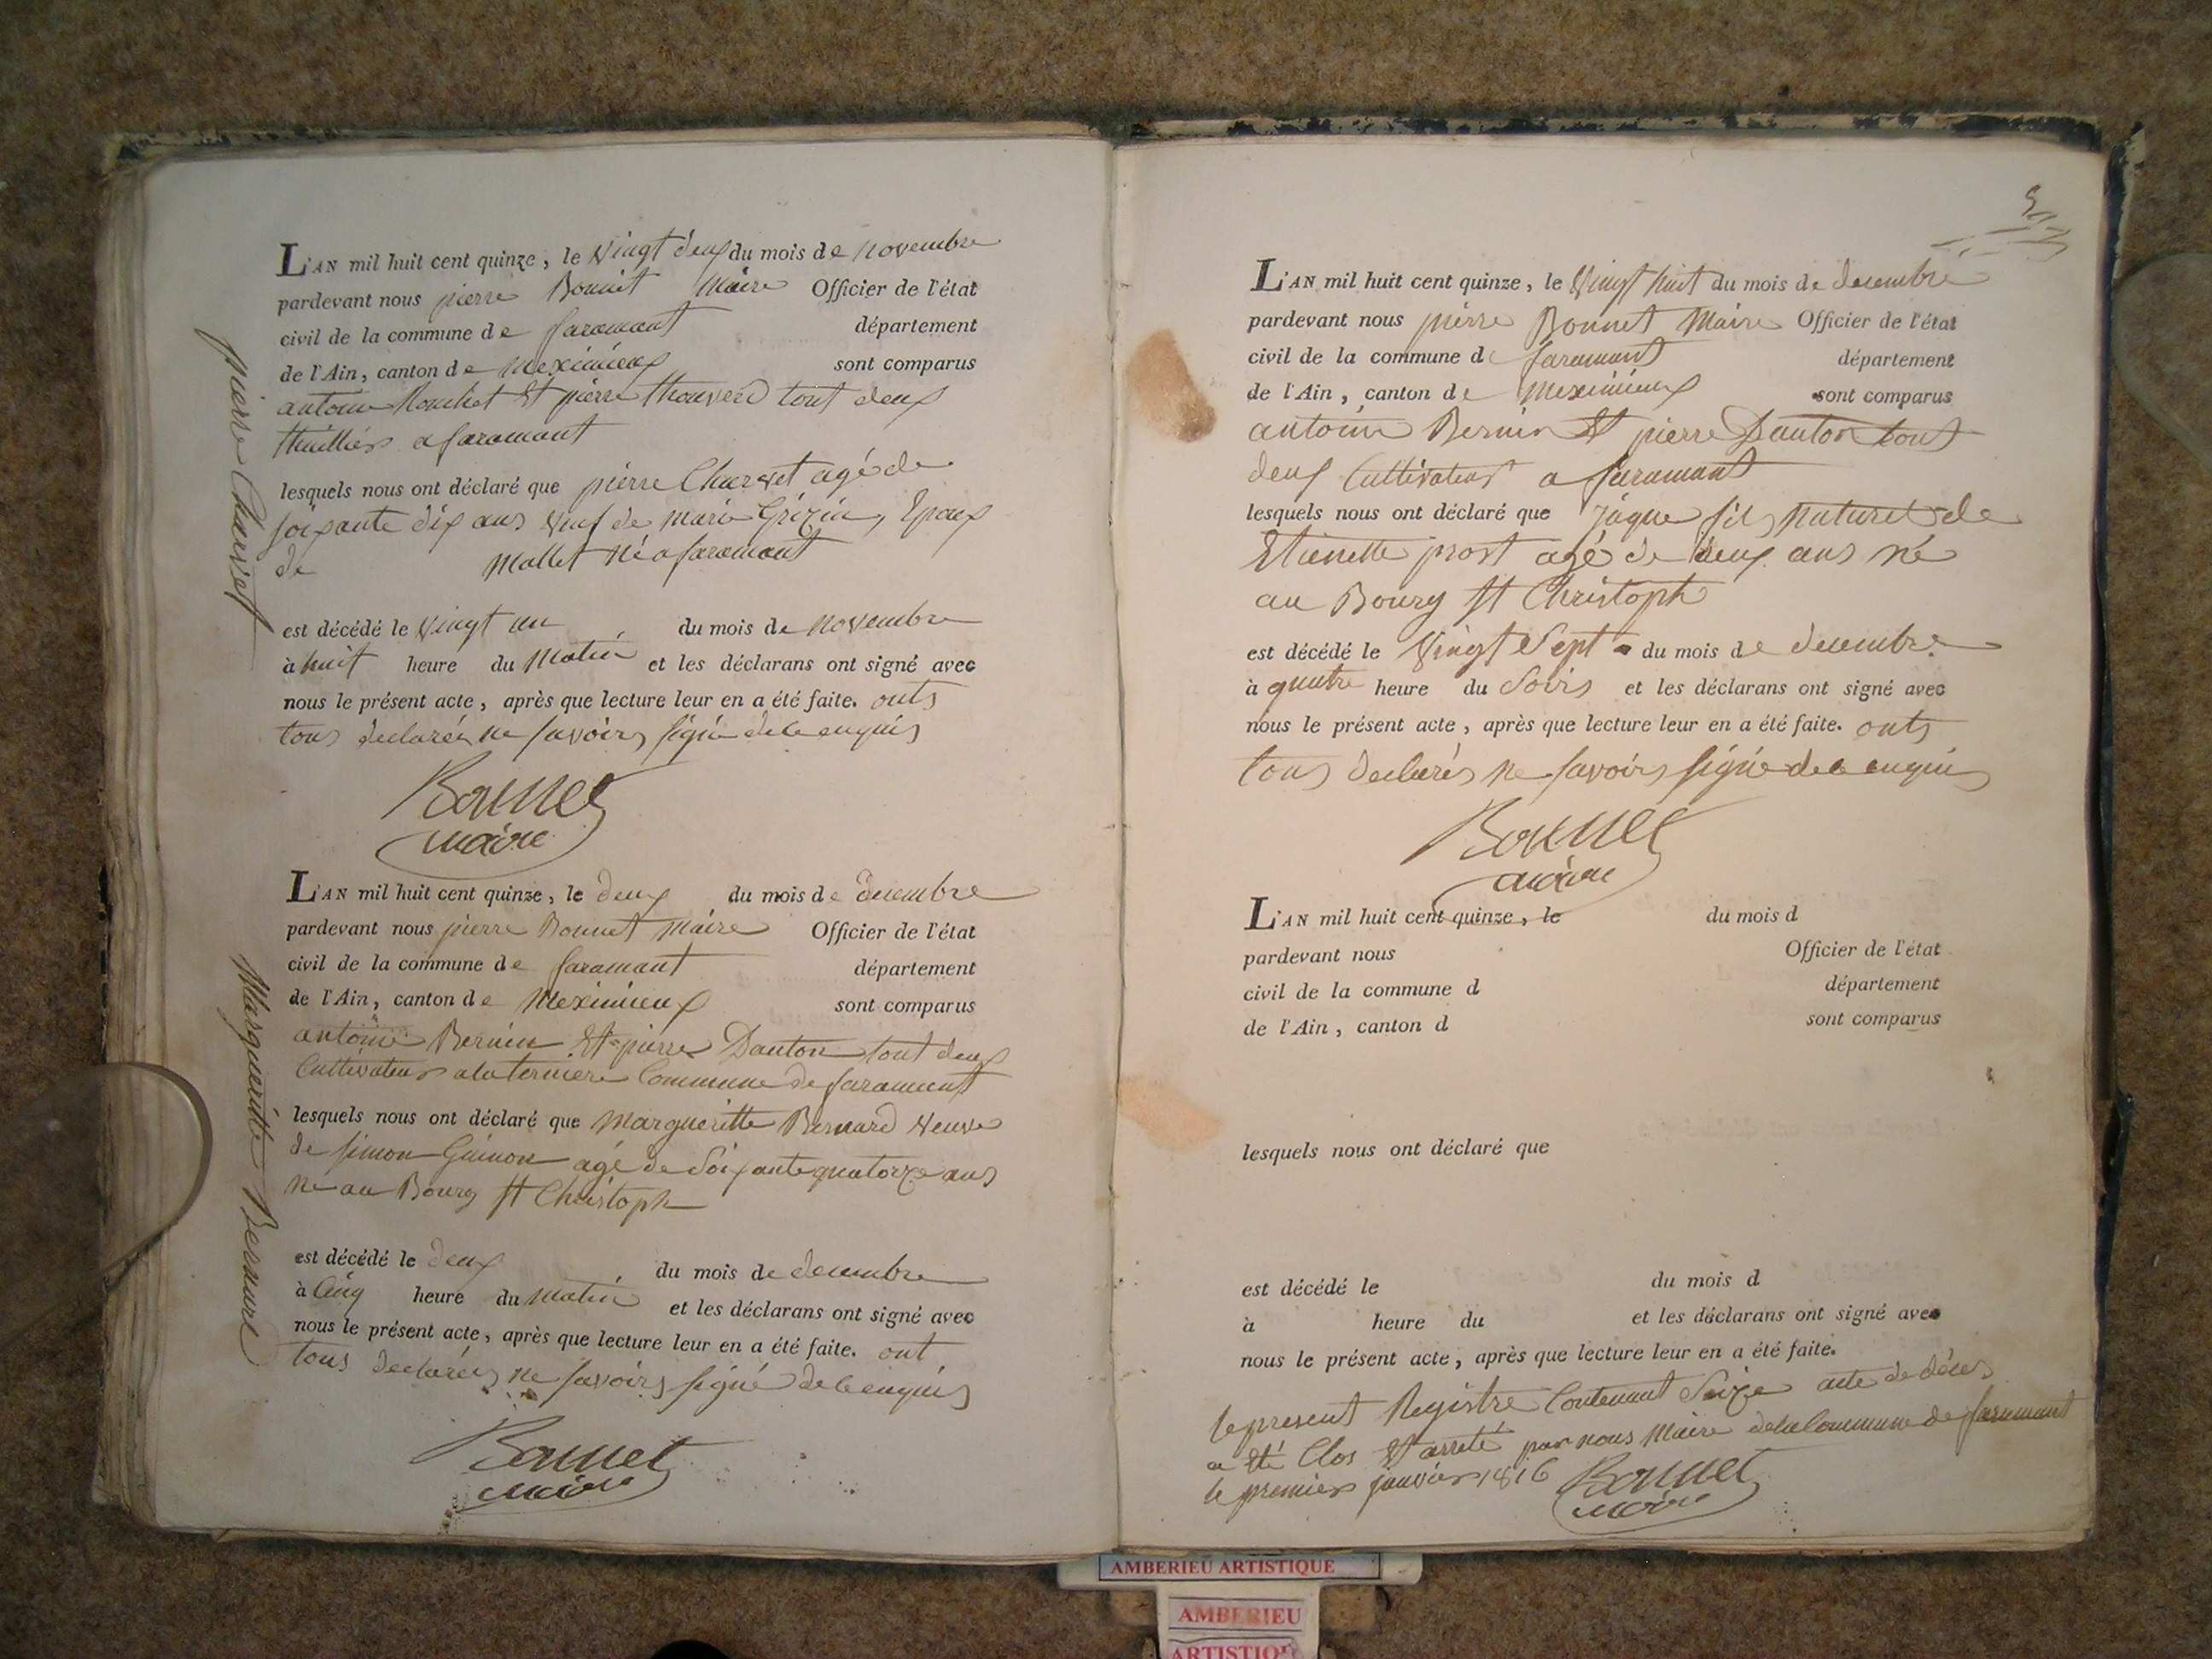 L'AN mil huit cent quinze, le vingt deux du mois de novembre
pardevant nous pierre Bonnet Maire Officier de l'état
civil de la commune de faramant département
de l'Ain, canton de Meximieux sont comparus
antoine et pierre thouverd tout deux
thuilliers a faramant
lesquels nous ont déclaré que pierre Charvet agé de
soixante dix ans veuf de marie Grizin, Epoux
de Mallet né a faramant
est décédé le vingt un du mois de novembre
à huit heure du Matin et les déclarans ont signé avec
nous le présent acte, après que lecture leur en a été faite. onts
tous declarés ne savoirs signé de ce enquis
Bonnet
maire
pierre Charvet
L'AN mil huit cent quinze, le deux du mois de decembre
pardevant nous pierre Bonnet Maire Officier de l'état
civil de la commune de faramant département
de l'Ain, canton de Meximieux sont comparus
antoine Bernin Et pierre Danton tout deux
Cultivateurs a la Commune de faramant
lesquels nous ont déclaré que Margueritte Bernard veuve
de simon Guinon agé de Soixante quatorze ans
ne au Bourg St Christoph
est décédé le deux du mois de decembre
à Cinq heure du Matin et les déclarans ont signé avec
nous le présent acte, après que lecture leur en a été faite. ont
tous declarés ne savoirs signé de ce enquis
Bonnet
maire
Margueritte Bernard
L'AN mil huit cent quinze, le vingt huit du mois de decembre
pardevant nous pierre Bonnet Maire Officier de l'état
civil de la commune de faramant département
de l'Ain, canton de Meximieux sont comparus
antoine Bernin Et pierre Danton tout
deux Cultivateurs a faramant
lesquels nous ont déclaré que jaque fils naturel de
Etienette prost agé de deux ans né
au Bourg St Christoph
est décédé le vingt Sept du mois de decembre
à quatre heure du Soirs et les déclarans ont signé avec
nous le présent acte, après que lecture leur en a été faite. onts
tous declarés ne savoirs signé de ce enquis
Bonnet
maire
L'AN mil huit cent quinze, le du mois d
pardevant nous Officier de l'état
civil de la commune d département
de l'Ain, canton d sont comparus
lesquels nous ont déclaré que
est décédé le du mois d
à heure du et les déclarans ont signé avec
nous le présent acte, après que lecture leur en a été faite.
le present Registre Contenant Seize acte de décès
a été Clos Et arreté par nous Maire de la Commune de faramant
le premiers janviers 1816 Bonnet
maire
AMBERIEU ARTISTIQUE
AMBERIEU